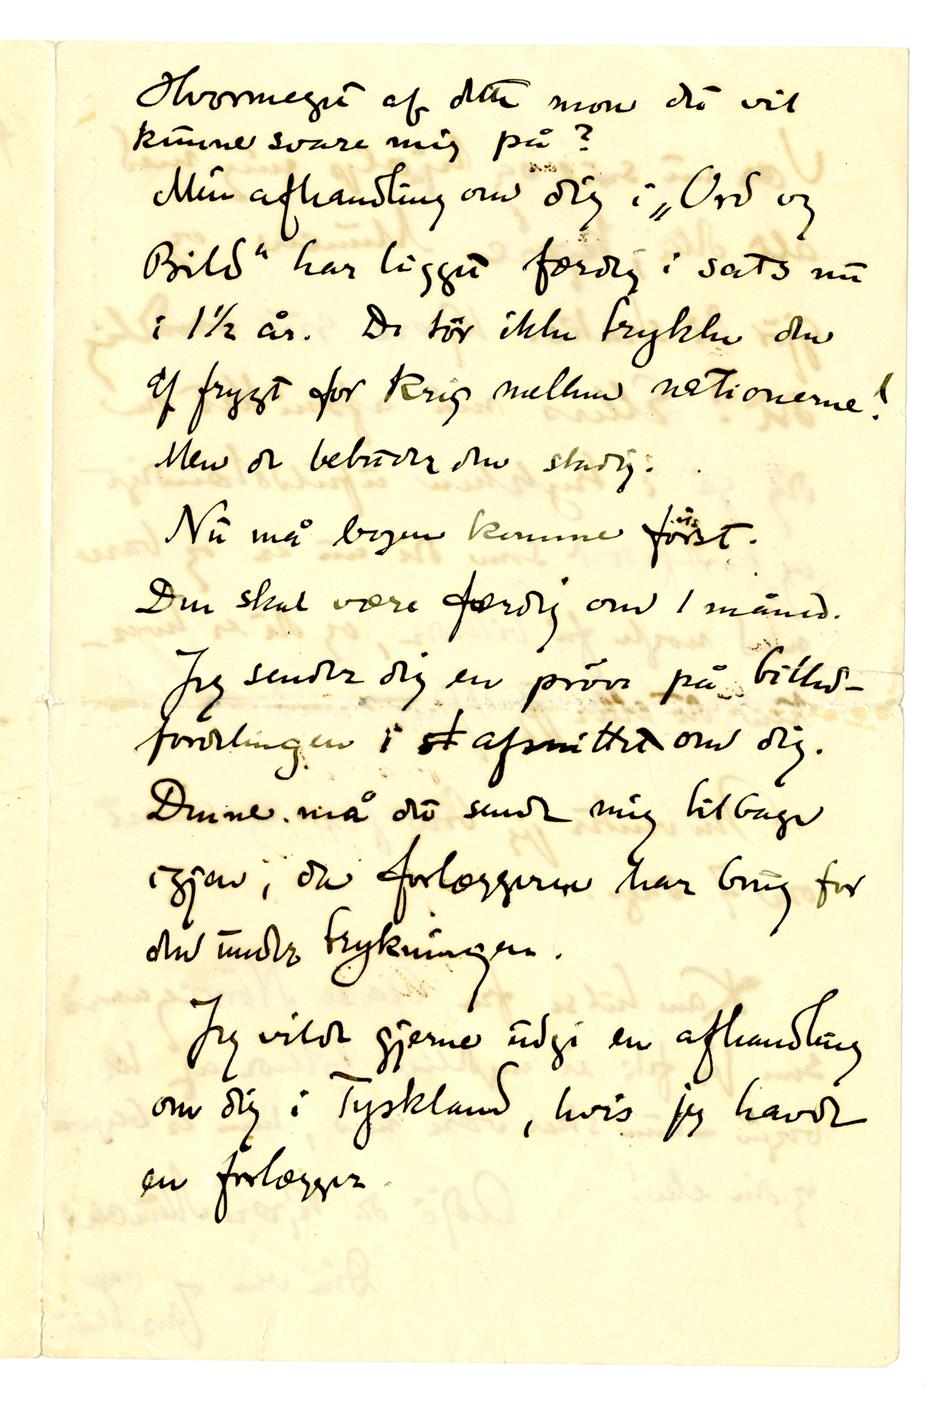 Hvormeget af dette mon du vil
kunne svare mig på?
Min afhandling om dig i „Ord og
Bild“ har ligget færdig i sats nu
i 1½ år. De tör ikke trykke den
af frygt for krig mellem nationerne!
Men de bebuder den stadig.
Nu må bogen komme först.
Den skal være færdig om 1 måned.
Jeg sender dig en pröve på billed-
fordelingen i afsnittet om dig.
Denne må du sende mig tilbage
igjen, da forlæggeren har brug for
den under trykningen.
Jeg vilde gjerne udgi en afhandling
om dig i Tyskland, hvis jeg havde
en forlægger.